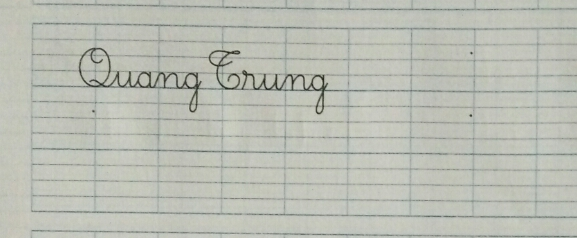 Quang Trung